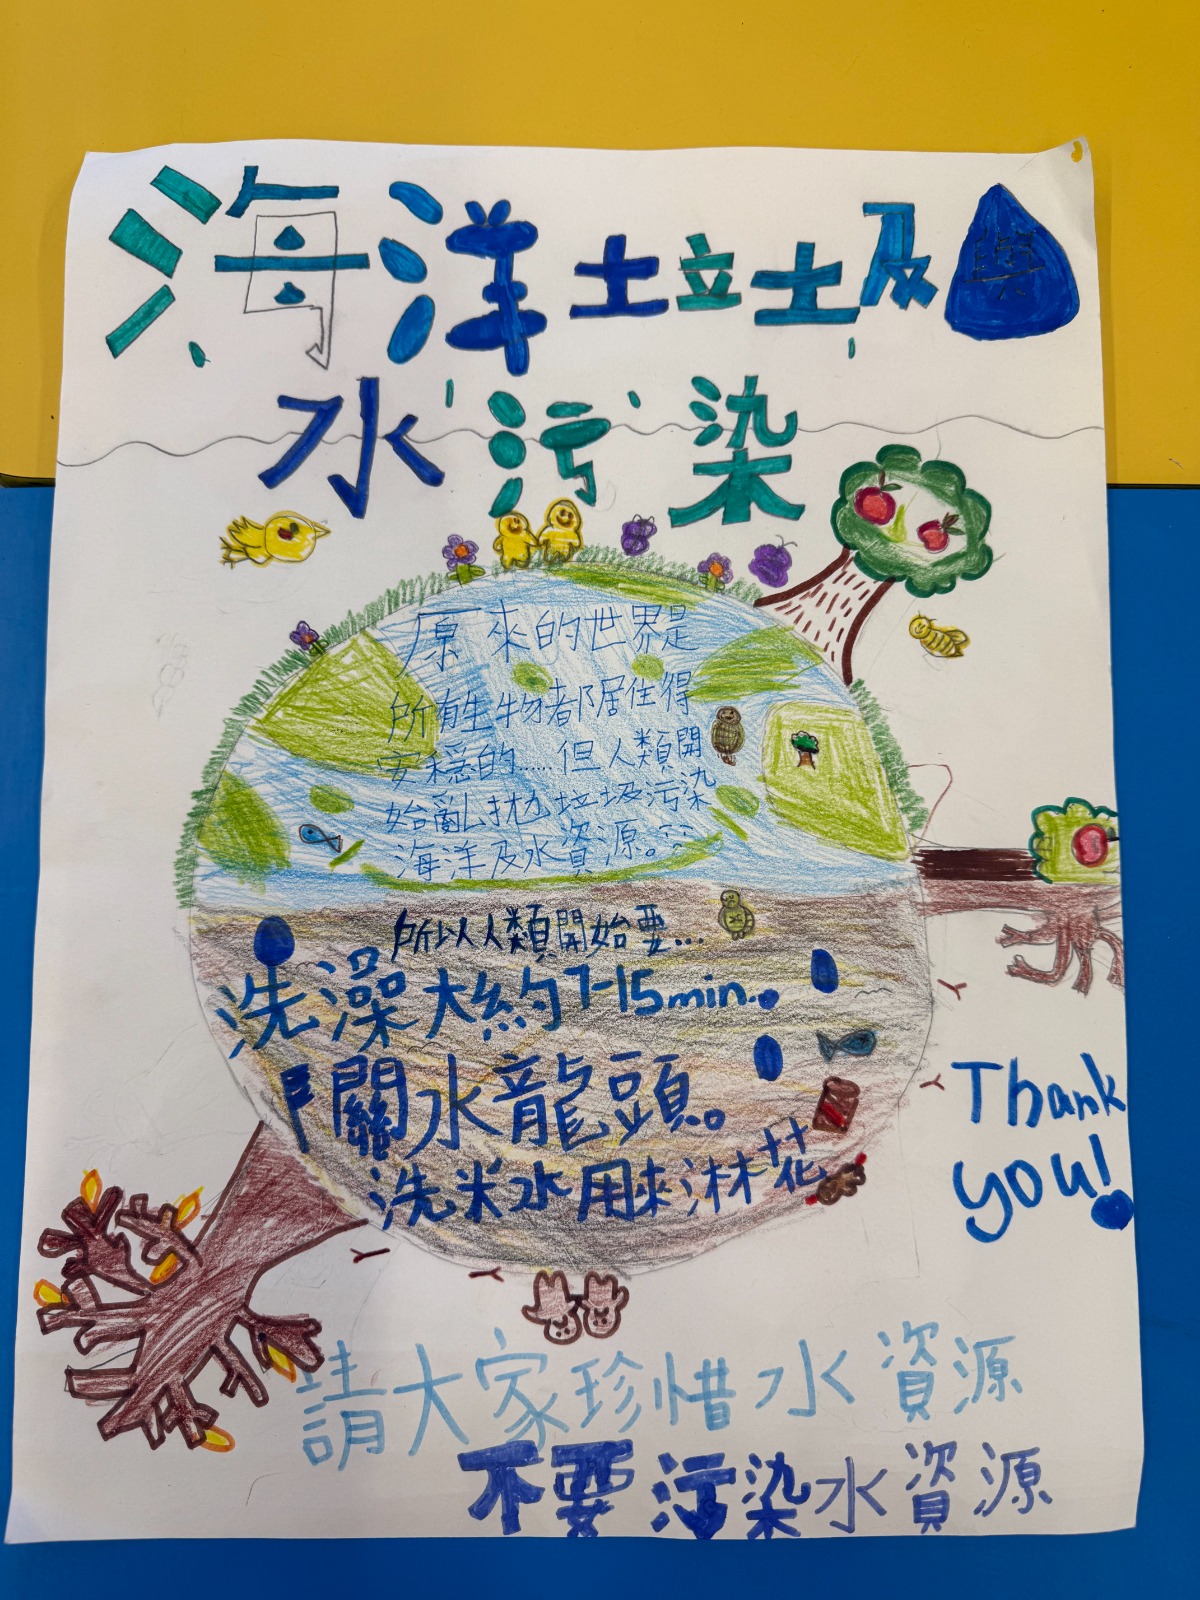 海洋垃圾與
水污染
原來的世界是
所有生物都居住得
安穩的......但人類開
始亂拋垃圾污染
海洋及水資源。
所以人類開始要...
洗澡大約7-15min.
關水龍頭。
洗米水用來淋花
Thank
you!
請大家珍惜水資源
不要污染水資源